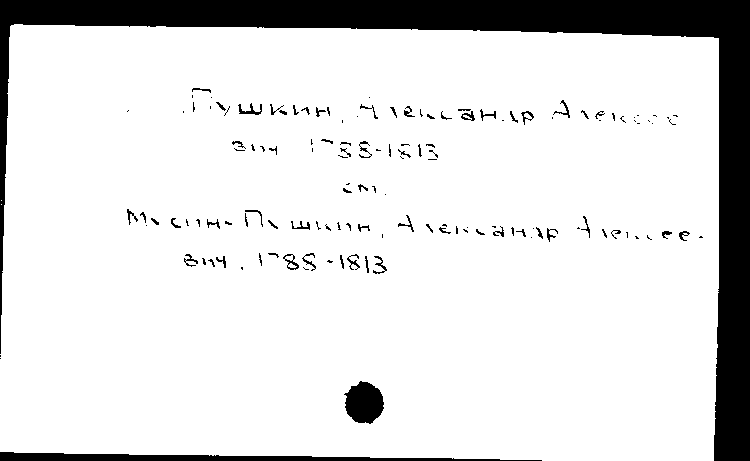 Пушкин, Александр Алексее
вич 1788-1813
см.
Мусин-Пушкин, Александр Алексее-
вич, 1788-1813